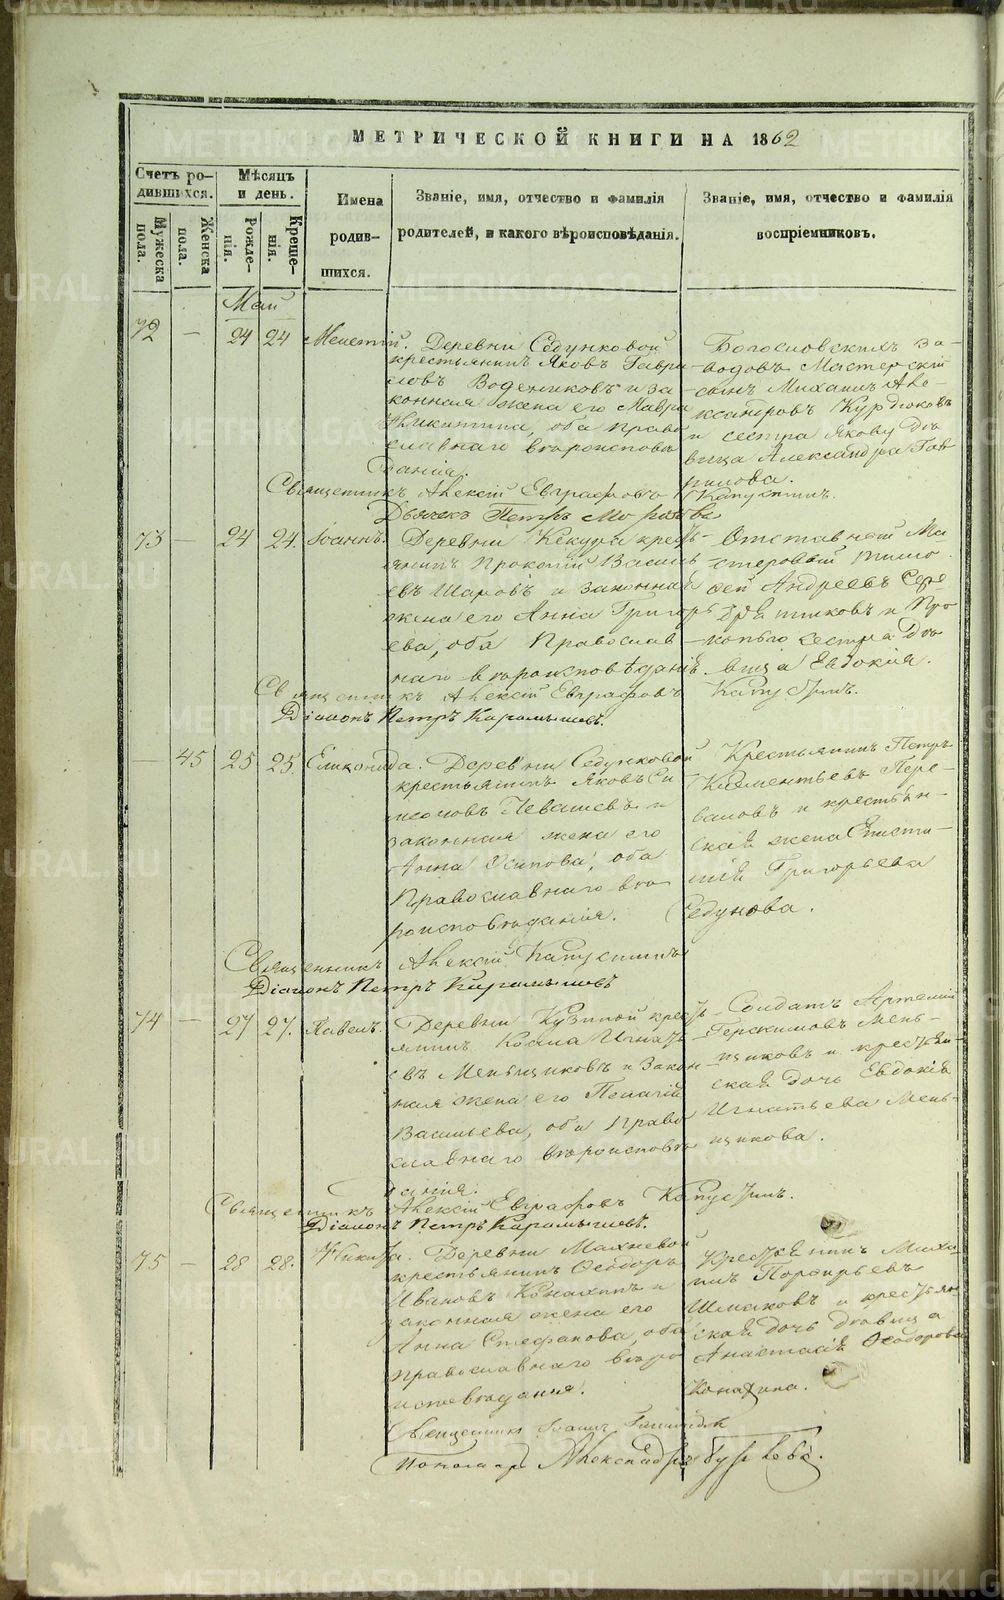 МЕТРИЧЕСКОЙ КНИГИ НА 1862
Счетъ ро-
дившихся.
Мужеска
пола.
Женска
пола.
Мѣсяцъ
и день.
Рожде-
нія.
Креще-
нія.
Имена
родив-
шихся.
Званіе, имя, отчество и фамилія
родителей, и какого вѣроисповѣданія.
Званіе, имя, отчество и фамилія
воспріемниковъ.
Май
72 — 24 24 Мелетій.
Деревни Седунковой
крестьянинъ Яковъ Гаври
ловъ Воденниковъ и за
конная жена его Мавра
Никитина, оба право
славнаго вѣроисповѣ
данія.
Богословскихъ за-
водовъ Мастерскій
сынъ Михаилъ Але-
ксандровъ Курдюковъ
и сестра Якову дѣ
вица Александра Гав
рилова.
Священникъ Алексій Евграфовъ Капустинъ.
Дьячекъ Петръ
73 — 24 24. Іоаннъ.
Деревни Кекура кресть-
янинъ Прокопій Василь
евъ Шаровъ и законная
жена его Анна Григорь
ева, оба Православ-
наго вѣроисповѣданія.
Отставной Ма
стеровой Тимо
фей Андреевъ Сере
бряниковъ и Про
копью сестра дѣ
вица Евдокія.
Священникъ Алексій Евграфовъ Капустинъ.
Діаконъ Петръ Карамышевъ.
— 45 25 25. Еликонида.
Деревни Седунковой
крестьянинъ Яковъ Си
Чевашевъ и
законная жена его
Анна Осипова, оба
Православнаго вѣ
роисповѣданія.
Крестьянинъ Петръ
Климентьевъ Пере-
валовъ и крестьян-
ская жена Еписти-
мія Григорьева
Седунова.
Священникъ Алексій Капустинъ
Діаконъ Петръ Карамышевъ
74 — 27 27. Павелъ.
Деревни Кузиной кресть-
янинъ Косма Игнать-
евъ Меньщиковъ и закон-
ная жена его Пелагія
Васильева, оба право
славнаго вѣроисповѣ
данія.
Солдатъ Артемій
Герасимовъ Мень-
щиковъ и крестьян-
ская дочь Евдокія
Игнатьева Мень-
щикова.
Священникъ Алексій Евграфовъ Капустинъ.
Діаконъ Петръ Карамышевъ.
75 — 28 28. Никита.
Деревни Махневой
крестьянинъ Ѳеодоръ
Ивановъ Конахинъ и
законная жена его
Анна Стефанова, оба
православнаго вѣро
исповѣданія.
Крестьянинъ Миха
илъ Порфирьевъ
Шмаковъ и крестьян
ская дочь дѣвица
Анастасія Ѳеодорова
Конахина.
Священникъ Іоаннъ
Пономарь Александръ